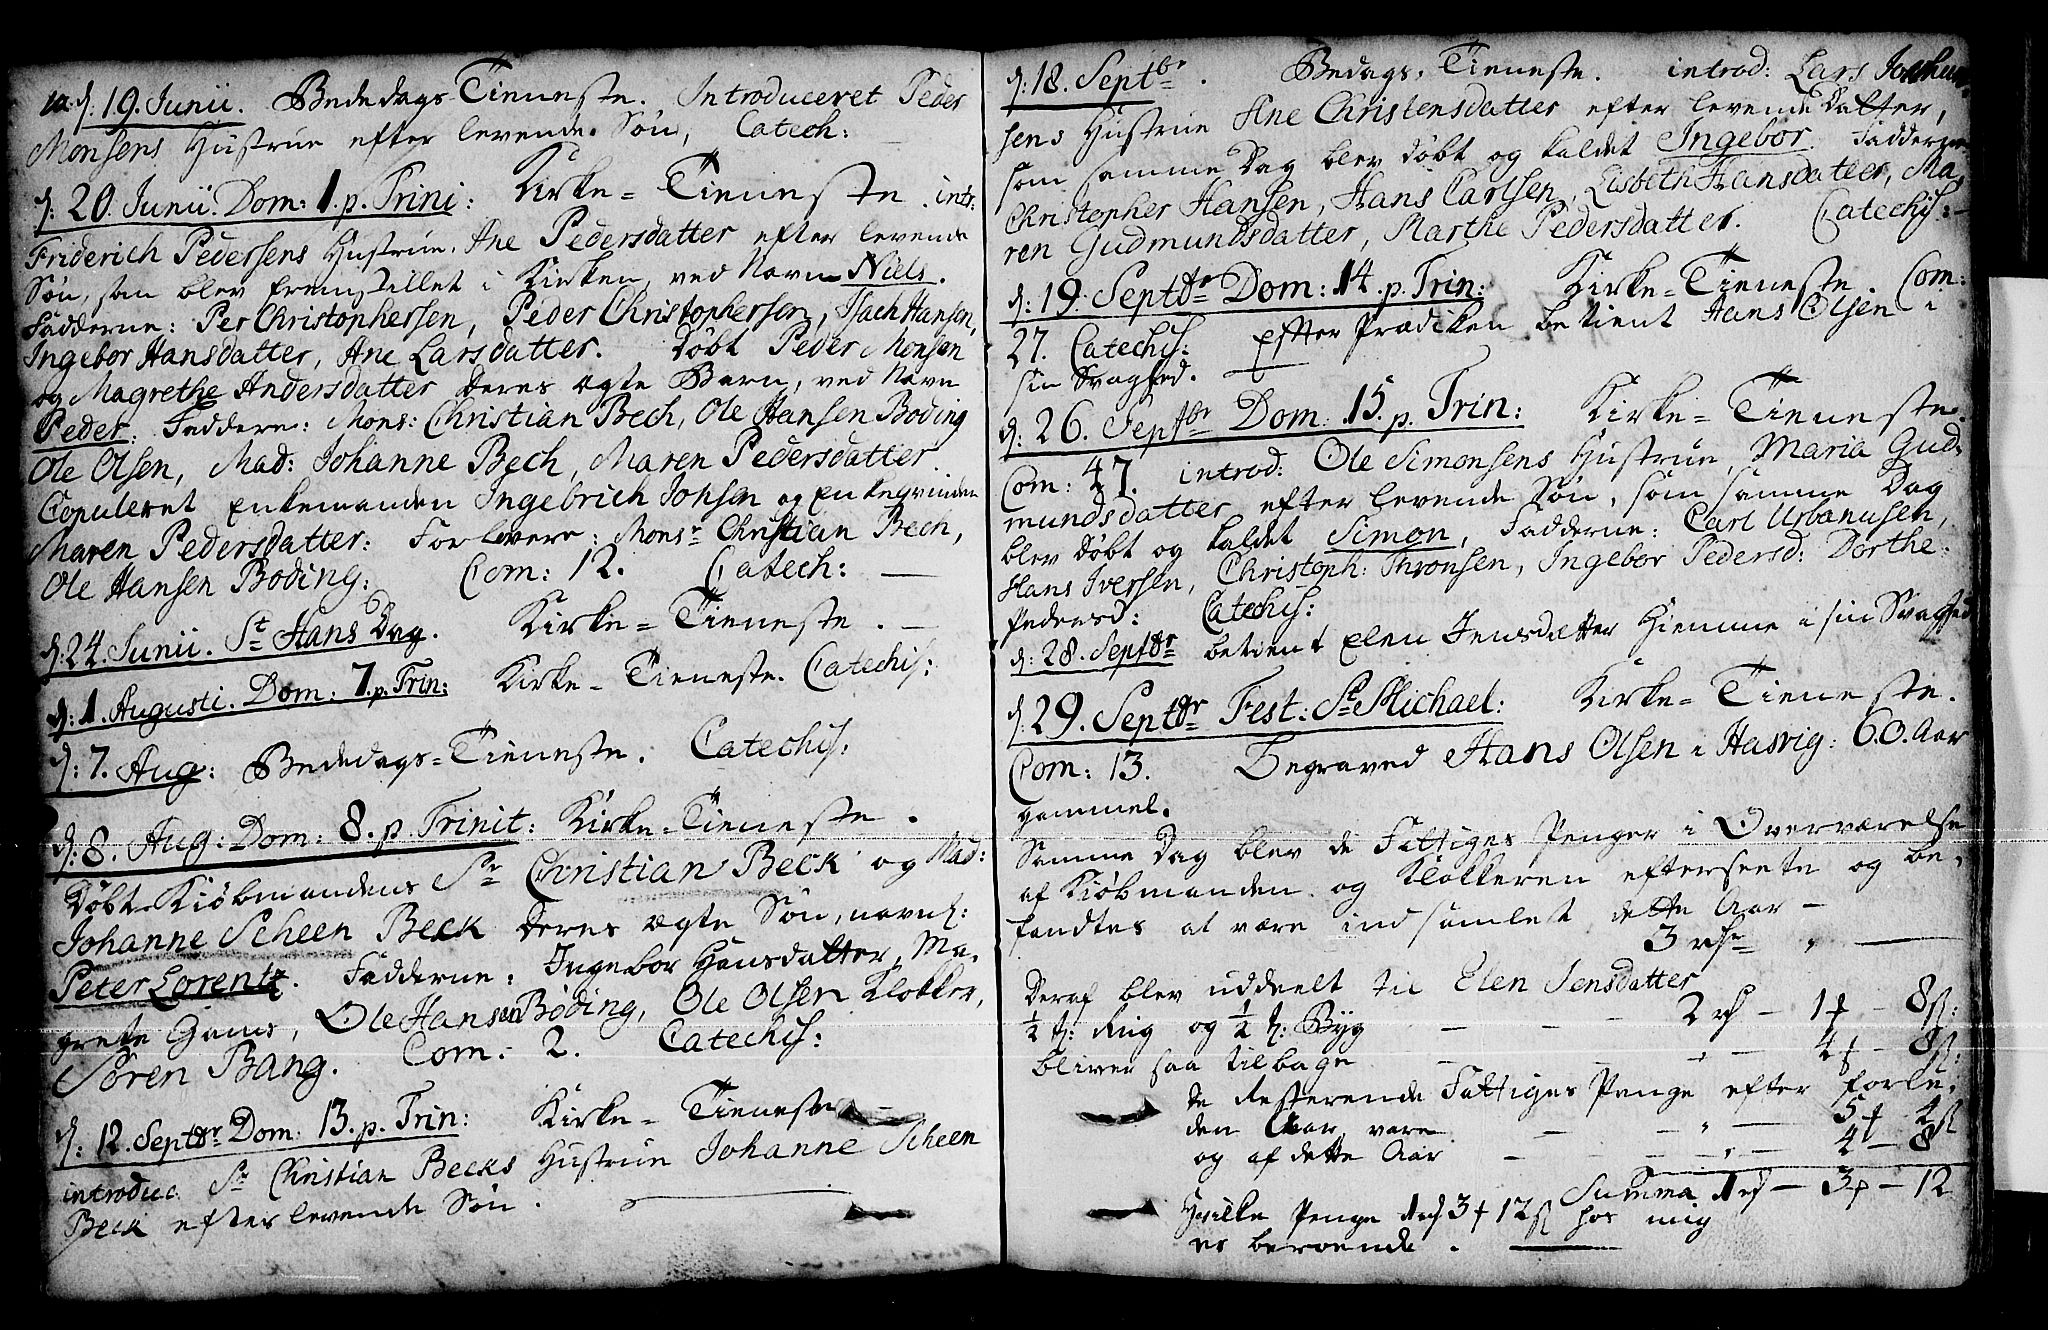 d: 19. Junii. Bededags-Tieneste. Introduceret Peder
Monsens Hustrue efter levende Søn, Catech:
d: 20. Junii. Dom: 1. p. Trini: Kirke-Tieneste. intr:
Friderich Pedersens Hustrue, Ane Pedersdatter efter levende
Søn, som blev fremstillet i Kirken, ved Navn Niels.
Fadderne: Per Christophersen, Peder Christophersen, Isach Hansen,
Ingebor Hansdatter, Ane Larsdatter. Døbt Peder Monsen
og Magrethe Andersdatter deres ægte Barn, ved Navn
Peder. Faddere: Mons: Christian Bech, Ole Hansen Boding
Ole Olsen, Mad: Johanne Bech, Maren Pedersdatter.
Copuleret Enkemanden Ingebrich Johsen og Enkeqvinden
Maren Pedersdatter: Forlovere: Monsr Christian Bech,
Ole Hansen Boding: Com: 12. Catech: —
d: 24. Junii. St Hans Dag. Kirke-Tieneste. —
d: 1. Augusti. Dom: 7. p. Trin: Kirke-Tieneste. Catechis:
d: 7. Aug: Bededags-Tieneste. Catechis:
d: 8. Aug: Dom: 8. p. Trinit: Kirke-Tieneste.
Døbt Kiøbmandens Sr Christian Beck og Mad:
Johanne Scheen Beck deres ægte Søn, navnl:
Peter Lorentz. Fadderne: Ingebor Hansdatter, Ma-
grete Gams, Ole Hansen Bøding, Ole Olsen Klokker,
Søren Bang. Com: 2. Catechis:
d: 12. Septbr Dom: 13. p. Trin: Kirke-Tieneste —
introduc. Sr Christian Becks Hustrue Johanne Scheen
Beck efter levende Søn.
d: 18. Septbr. Bedags-Tieneste. introd: Lars
sens Hustrue Ane Christensdatter efter levende Datter,
som samme Dag blev døbt og kaldet Ingebor. Fadderne
Christopher Hansen, Hans Carlsen, Lisbeth Hansdatter, Ma-
ren Gudmundsdatter, Marthe Pedersdatter. Catechis: —
d: 19. Septbr Dom: 14. p. Trin: Kirke-Tieneste. Com:
27. Catechis: Efter Prædiken betient Hans Olsen i
sin Svaghed.
d: 26. Septbr Dom. 15. p. Trin: Kirke-Tieneste.
Com: 47. introd: Ole Simonsens Hustrue, Maria Gud-
mundsdatter efter levende Søn, som samme Dag
blev døbt og kaldet Simon, Fadderne: Carl Urbanusen,
Hans Iversen, Christoph: Thronsen, Ingebor Pedersd: Dorthe:
Pedersd: Catechis:
d: 28. Septbr betient Elen Jensdatter Hiemme i sin Svaghed
d: 29. Septbr Fest: St Michael: Kirke-Tieneste.
Com: 13. Begraved Hans Olsen i Hasvig: 60. Aar
gammel.
Samme Dag blev de Fattiges Penger i Overværelse
af Kiøbmanden og Klokkeren efterseete og be-
fandtes at være indsamlet dette Aar —
3 rdr „ —
Deraf blev uddeelt til Elen Jensdatter
½ t: Rug og ½ t: Byg — — — 2 rd — 1 ₰ — 8 ß:
bliver saa tilbage — — „ — 4 ₰ — 8 ß:
de Resterende Fattiges Penge efter forle-
den Aar, vare — — „ — 5 ₰ 4 ß
og af dette Aar — — — „ — 4 — 8
Summa 1 rd — 3 ₰ — 12
Hvilke Penge 1 rd 3 ₰ 12 ß hos mig
er beroende.